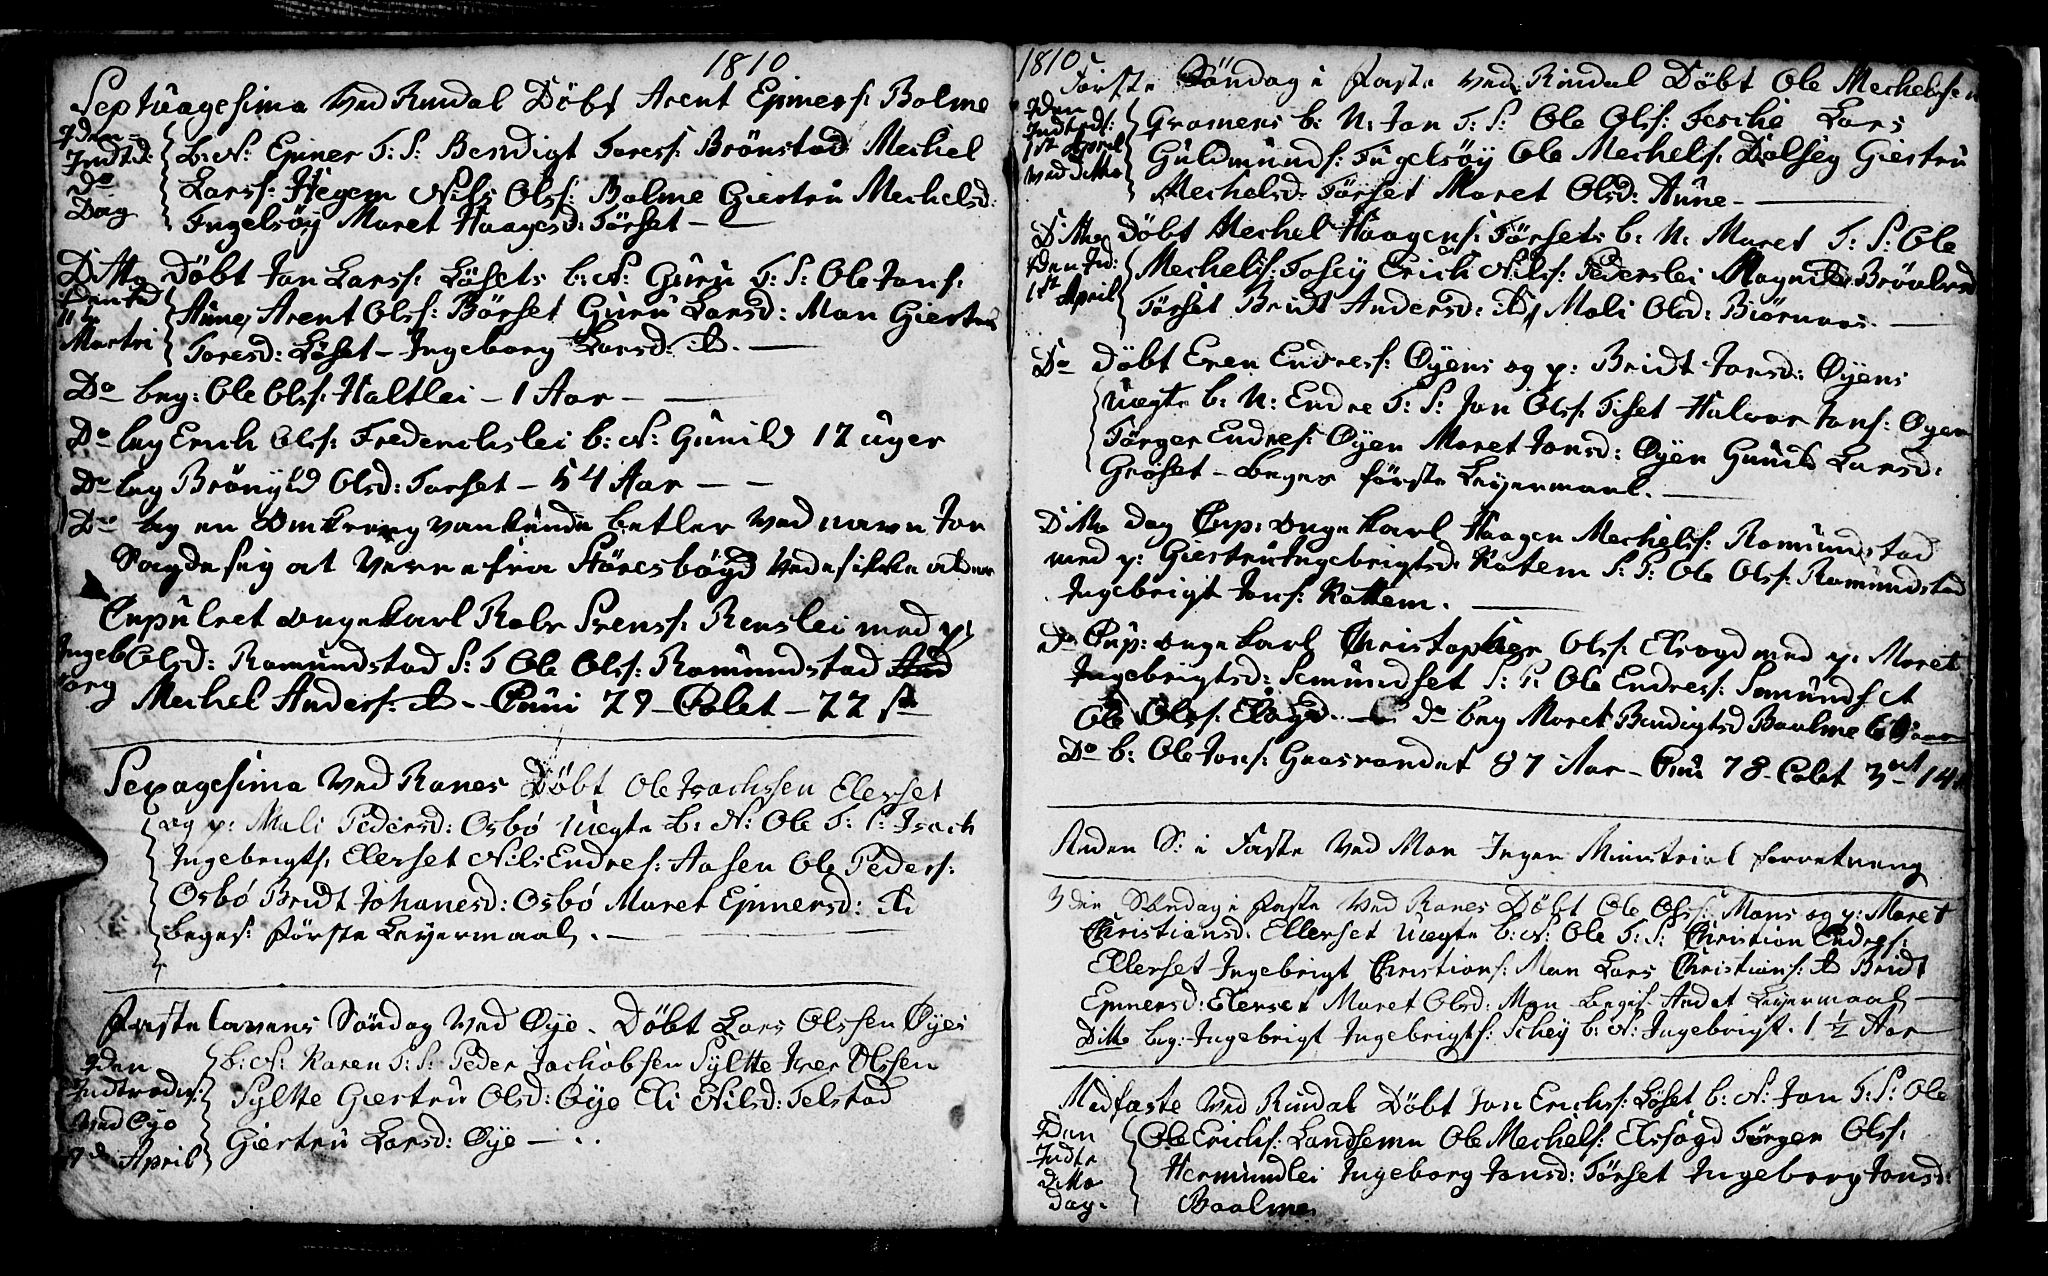 1810
Septuagesima Ved Rindal Döbt Arent Epners: Bolme
qden Indtd: Do Dag
b: N: Epner T: S: Bendigt Fores: Brönstad Mechel
Larss: Hegem Nils Ols: Bolme Giertru Mechelsd:
Fugelsöy Maret Haagesd: Törset
Ditto Döbt Jon Larss: Löfets b: N: Guru T: S: Ole Jons:
Martri
Aune, Arent Ols: Börset Guru Larsd: Mon Giertru
Toresd: Löset – Ingeborg Larsd: do. —
Do beg: Ole Ols: Haltlei – 1 Aar —
Do beg Erich Ols: Frederichslei b: N: Gunild 12 uger
Do beg Brönyld Olsd: Törset – 54 Aar — —
Do beg en Omkreng vankende betler Ved navn Jon
Sagde sig at Verre fra Störesbögd Vedes ikke alder
Cupulret Ungekarl Roar Svenss: Renslei med p:
Ingeborg Olsd: Romundstad S: T Ole Ols: Romundstad
Mechel Anders: do. Cuui 79 – Colet – 22 s
Sexagesima Ved Ranes Döbt Ole Isachssen Elerset
og p: Mali Pedersd: Osbö Uægte b: N: Ole T: S: Isach
Ingebrigts: Elerset Nils Endres: Aasen Ole Peders:
Osbö Bridt Johanesd: Osbö Maret Epnersd: do
beges: første Leyermaal. —
Fastelavens Söndag Ved Öye. Döbt Lars Olssen Öyes
qden Indtreder: Ved Öye 7de April
b: N: Karen T: S: Peder Jachobsen Sylte Iver Olssen
Sylte Giertru Olsd: Öye Eli Nilsd: Telstad
Giertru Larsd: Öye —
1810
Förste Söndag i Faste Ved Rindal Döbt Ole Mechelssen
qden Indtrds: 1st April Ved ditto
Gromens b: N: Jon T: S: Ole Ols: Feschie Lars
Guldmunds: Fugelsöy Ole Mechels: Dalsey Giertru
Mechelsd: Törset Maret Olsd: Aune —
Ditto Döbt Mechel Haagens: Törsets b: N: Maret T: S: Ole
qden Ind: 1st April
Mechels: Fosey Erich Nils: Federslei Magnild Brövolsd
Törset Bridt Andersd: do Mali Olsd: Biörnaas. —
Do Döbt Even Endress: Öyens og p: Bridt Jonsd: Öyens
Uægte b: N: Endre T: S: Jon Ols: Tiset Halvor Jons: Öyen
Törger Endres: Öyen Maret Jonsd: Öyen Gunild Larsd:
Gröset – beges første Leyermaal. —
Ditto dag Cup: Ungekarl Haagen Mechels: Romundstad
med p: Giertru Ingebrigtsd: Kattem S: T: Ole Ols: Romundstad
Ingebrigt Jons: Kattem. —
Do Cup: Ungekarl Christopher Ols: Elsogd med p: Maret
Ingebrigtsd: Semundset S: T: Ole Endres: Semundset
Ole Ols: Elsogd. — Do beg Maret Bendigtsd Baalme
Do b: Ole Jons: Graasvandet 87 Aar – Cuui 78 – Colet 3 14
Anden S: i Faste Ved Moe Ingen Ministrial forretning
3den Söndag i Faste Ved Ranes Döbt Ole Ols: Moes og p: Maret
Christiansd: Ellerset Uægte b: N: Ole T: S: Christian Endres:
Ellerset Ingebrigt Christians: Moe Lars Christians: do Bridt
Epnersd: Elerset Maret Olsd: Moe begis Andet Leyermaal —
Ditto beg: Ingebrigt Ingebrigts: Schey b: N: Ingebrigt. 1 ½ Aar
Midfaste Ved Rindal Döbt Jon Erichs: Löset b: N: Jon T: S: Ole
qden Indte ditto dag.
Ole Erichs: Landsemn Ole Mechels: Elssogd Törger Ols:
Hermundlei Ingeborg Jonsd: Törset Ingeborg Jonsd:
Baalme.